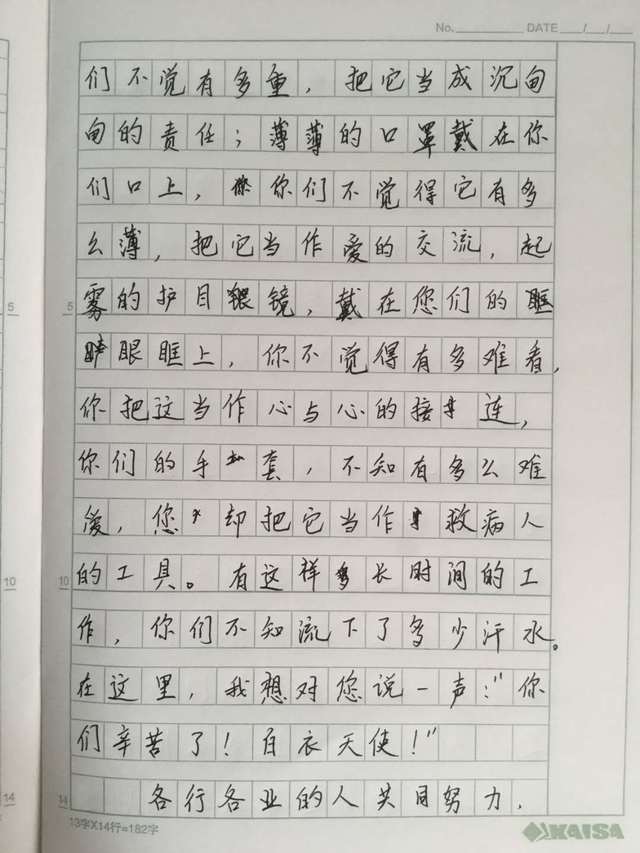 No. DATE / /
们不觉有多重，把它当成沉甸
甸的责任；薄薄的口罩戴在你
们口上，你们不觉得它有多
么薄，把它当作爱的交流，起
雾的护目镜，戴在您们的
眼眶上，你不觉得有多难看，
你把这当作心与心的接连，
你们的手套，不知有多么难
受，您却把它当作救病人
的工具。有这样多长时间的工
作，你们不知流下了多少汗水。
在这里，我想对您说一声："你
们辛苦了！白衣天使！"
各行各业的人共同努力，
5
5
10
10
14
14
13字X14行=182字
KAISA